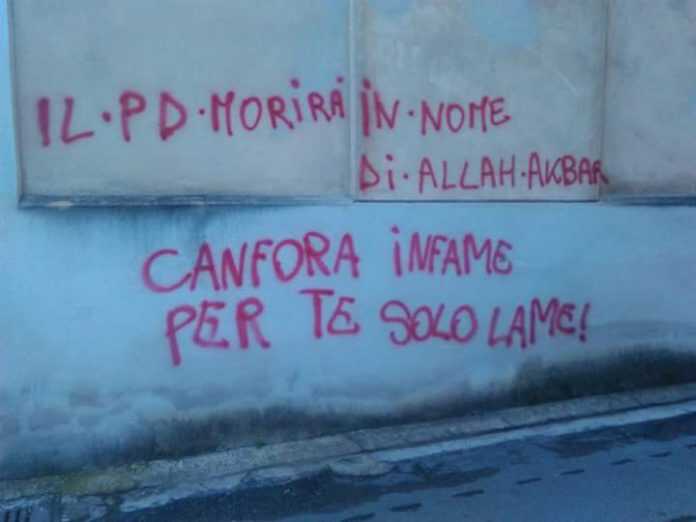 IL·PD·MORiRÁ iN·NOME
Di·ALLAH·AKBAR
CANFORA iNFAME
PER TE SOLO LAME!